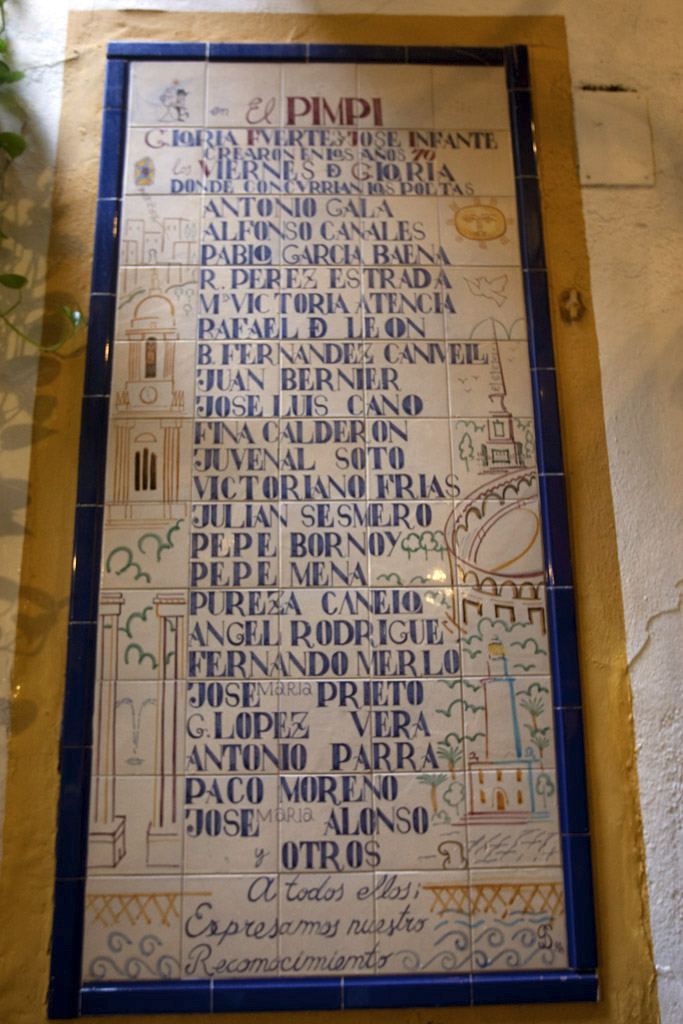 en El PIMPI
GLORIA FUERTE Y JOSE INFANTE
CREARON EN LOS AÑOS 70
los VIERNES Đ GLORIA
DONDE CONCVRRIAN LOS POETAS
ANTONIO GALA
ALFONSO CANALES
PABLO GARCIA BAENA
R. PEREZ ESTRADA
Mª VICTORIA ATENCIA
RAFAEL Đ LEON
B. FERNANDEZ CANIVELL
JUAN BERNIER
JOSE LUIS CANO
FINA CALDERON
JUVENAL SOTO
VICTORIANO FRIAS
JULIAN SESMERO
PEPE BORNOY
PEPE MENA
PUREZA CANELO
ANGEL RODRIGUEZ
FERNANDO MERLO
JOSE MARIA PRIETO
G. LOPEZ VERA
ANTONIO PARRA
PACO MORENO
JOSE MARIA ALONSO
y OTROS
A todos ellos;
Expresamos nuestro
Reconocimiento